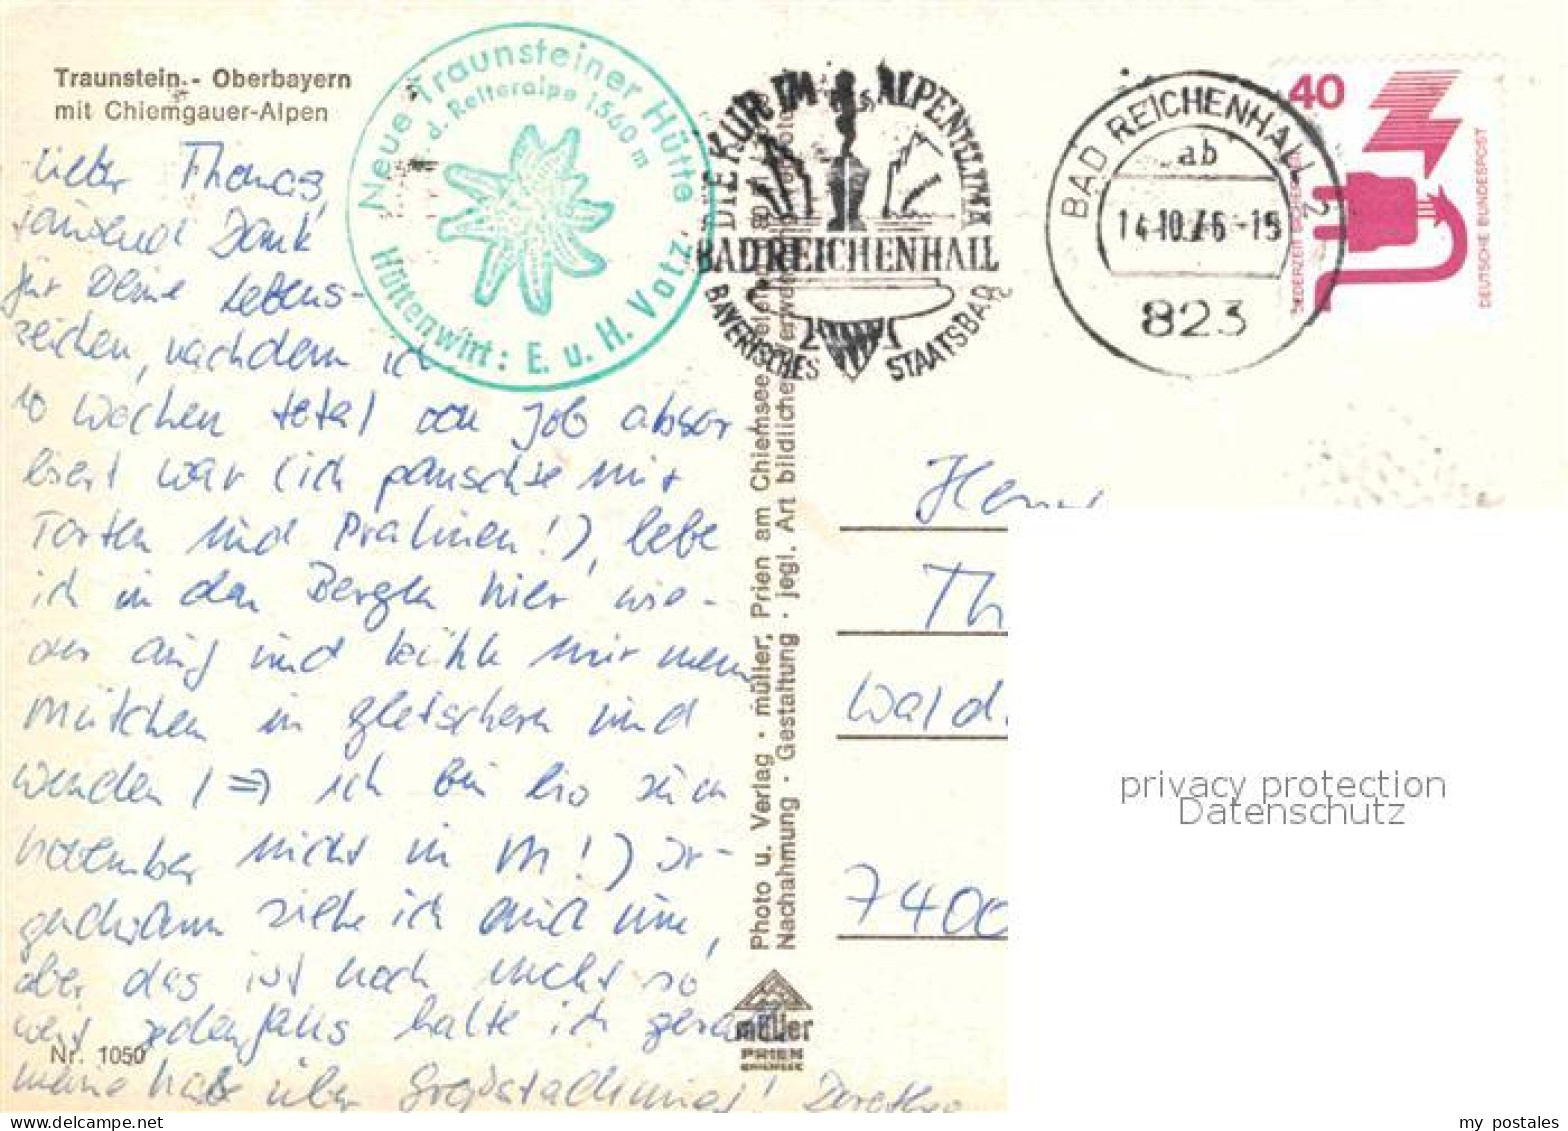 Traunstein - Oberbayern
mit Chiemgauer-Alpen
Lieber Thomas,
tausend Dank
für Deine Lebens-
zeichen, nachdem ich
10 Wochen total von Job absor
biert war (ich panschte mit
Torten und Pralinen!), lebe
ich in den Bergen hier wie-
der auf und kühle mir mein
Mütchen in Gletschern und
Wänden (⇒ ich bin bis zum
November nicht in M!) Ir-
gendwann ziehe ich auch um,
aber das ist noch nicht so
weit jedenfalls halte ich
meine über Dorothea
Nr. 1050
Neue Traunsteiner Hütte
a. d. Reiteralpe 1560 m
Hüttenwirt: E. u. H. Votz
DIE KUR IM ALPENKLIMA
BAD REICHENHALL
BAYERISCHES STAATSBAD
BAD REICHENHALL 2
ab
14.10.76-15
823
40
JEDERZEIT SICHERHEIT
DEUTSCHE BUNDESPOST
Photo u. Verlag · müller, Prien am Chiemsee
Nachahmung · Gestaltung · jegl. Art bildlicher
müller
PRIEN
CHIEMSEE
Herrn
Th
Wald
7400
privacy protection
Datenschutz
my postales